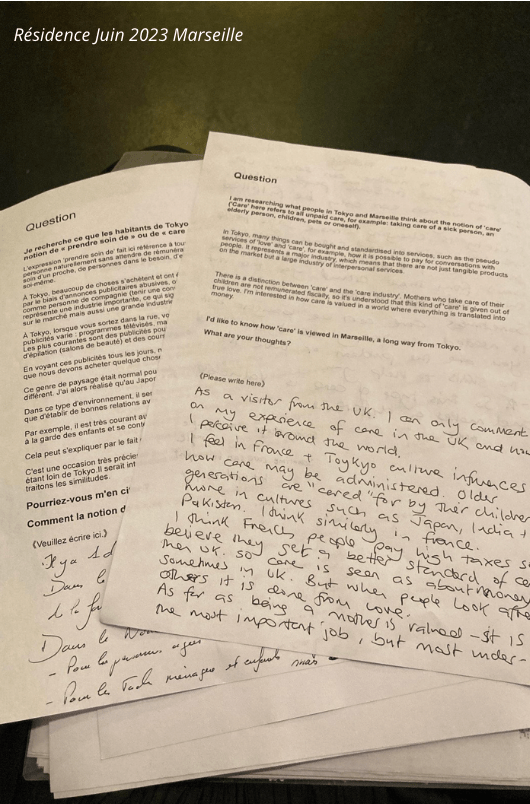 Résidence Juin 2023 Marseille
Question
Je recherche ce que les habitants de Tokyo
notion de « prendre soin de » ou de « care
L'expression 'prendre soin de' fait ici référence à tou
personne naturellement sans attendre de rémunéra
soin d'un proche, de personnes dans le besoin, d'e
soi-même.
À Tokyo, beaucoup de choses s'achètent et ont é
par le biais d'annonces publicitaires abusives, o
comme personne de compagnie (tenir une con
représente une industrie importante, ce qui sig
sur le marché mais aussi une grande industri
À Tokyo, lorsque vous sortez dans la rue, vo
publicités varie : programmes télévisés, ma
Les plus courantes sont des publicités pou
d'épilation (salons de beauté) et des cours
En voyant ces publicités tous les jours, n
que nous devons acheter quelque chose
Ce genre de paysage était normal pou
différent. J'ai alors réalisé qu'au Japor
Dans ce type d'environnement, il ser
que d'établir de bonnes relations av
Par exemple, il est très courant av
à la garde des enfants et se cont
Cela peut s'expliquer par le fait
C'est une occasion très précie
étant loin de Tokyo. Il serait int
traitons les similitudes.
Pourriez-vous m'en ci
Comment la notion d
(Veuillez écrire ici.)
Il y a
Dans l
Dans le
- Pour les personnes
- Pour les ménagère et enfants mais
Question
I am researching what people in Tokyo and Marseille think about the notion of 'care'
('Care' here refers to all unpaid care, for example: taking care of a sick person, an
elderly person, children, pets or oneself).
In Tokyo, many things can be bought and standardised into services, such as the pseudo
services of 'love' and 'care', for example, how it is possible to pay for conversations with
people. It represents a major industry, which means that there are not just tangible products
on the market but a large industry of interpersonal services.
There is a distinction between 'care' and the 'care industry'. Mothers who take care of their
children are not remunerated fiscally, so it's understood that this kind of 'care' is given out of
true love. I'm interested in how care is valued in a world where everything is translated into
money.
I'd like to know how 'care' is viewed in Marseille, a long way from Tokyo.
What are your thoughts?
(Please write here)
As a visitor from the UK. I can only comment
on my experience of care in the UK and how
I perceive it around the world.
I feel in France + Toykyo culture influences
how care may be administered. Older
generations are "cared" for by their children
more in cultures such as Japan, India +
Pakistan. I think similarly in france.
I think French people pay high taxes so
believe they get a better standard of ca
then UK. so care is seen as about money
sometimes in UK. But when people look after
others it is done from love.
As far as being a mother is valued - It is
the most important job, but most under-